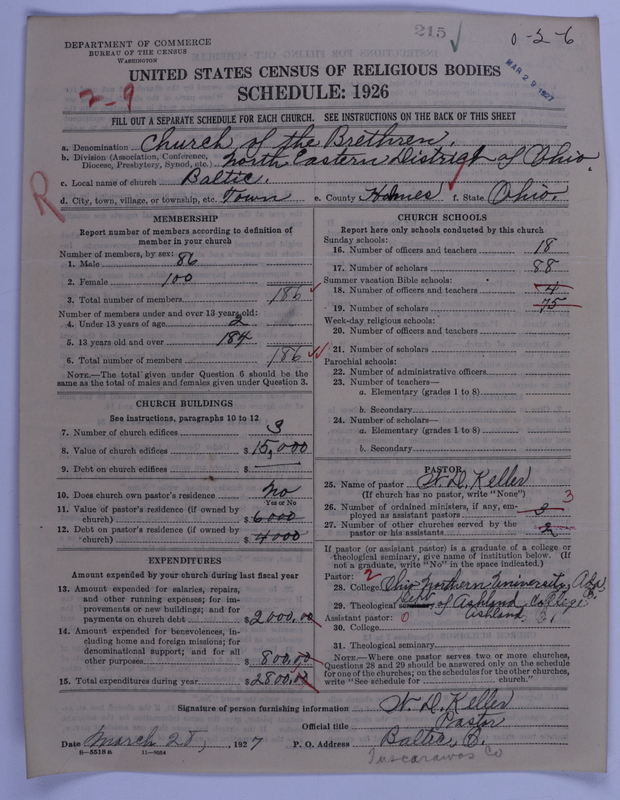 215
0-26
DEPARTMENT OF COMMERCE
BUREAU OF THE CENSUS
WASHINGTON
MAR 29 1927
UNITED STATES CENSUS OF RELIGIOUS BODIES
SCHEDULE: 1926
2-9
FILL OUT A SEPARATE SCHEDULE FOR EACH CHURCH. SEE INSTRUCTIONS ON THE BACK OF THIS SHEET
a. Denomination Church of the Brethren.
b. Division (Association, Conference, Diocese, Presbytery, Synod, etc.) North Eastern District of Ohio.
c. Local name of church Baltic.
R
d. City, town, village, or township, etc. Town e. County Holmes f. State Ohio.
MEMBERSHIP
Report number of members according to definition of
member in your church
Number of members, by sex:
1. Male 86
2. Female 100
3. Total number of members 186
Number of members under and over 13 years old:
4. Under 13 years of age 2
5. 13 years old and over 184
6. Total number of members 186
NOTE.—The total given under Question 6 should be
same as the total of males and females given under Question 3.
CHURCH BUILDINGS
See instructions, paragraphs 10 to 12
7. Number of church edifices 3
8. Value of church edifices $15,000
9. Debt on church edifices $
10. Does church own pastor's residence no
Yes or No
11. Value of pastor's residence (if owned by
church) $6000
12. Debt on pastor's residence (if owned by
church) $4000
EXPENDITURES
Amount expended by your church during last fiscal year
13. Amount expended for salaries, repairs,
and other running expenses; for im-
provements or new buildings; and for
payments on church debt $2000.00
14. Amount expended for benevolences, in-
cluding home and foreign missions; for
denominational support; and for all
other purposes $800.00
15. Total expenditures during year $2800.00
CHURCH SCHOOLS
Report here only schools conducted by this church
Sunday schools:
16. Number of officers and teachers 18
17. Number of scholars 88
Summer vacation Bible schools:
18. Number of officers and teachers 4
19. Number of scholars 75
Week-day religious schools:
20. Number of officers and teachers
21. Number of scholars
Parochial schools:
22. Number of administrative officers
23. Number of teachers—
a. Elementary (grades 1 to 8)
b. Secondary
24. Number of scholars—
a. Elementary (grades 1 to 8)
b. Secondary
PASTOR
25. Name of pastor W. D. Keller
(If church has no pastor, write "None") 3
26. Number of ordained ministers, if any, em-
ployed as assistant pastors
27. Number of other churches served by the
pastor or his assistants 2
If pastor (or assistant pastor) is a graduate of a college or
theological seminary, give name of institution below. (If
not a graduate, write "No" in the space indicated.)
Pastor: 2
28. College Ohio Northern University, Ada, O.
29. Theological seminary of Ashland College
Assistant pastor: 0 Ashland, O.
30. College
31. Theological seminary
NOTE.—Where one pastor serves two or more churches,
Questions 28 and 29 should be answered only on the schedule
for one of the churches; on the schedules for the other churches,
write "See schedule for church."
Signature of person furnishing information W. D. Keller
Official title Pastor
Date March 25, 1927 P. O. Address Baltic, O.
8—5518a 11—9054
Tuscarawas Co